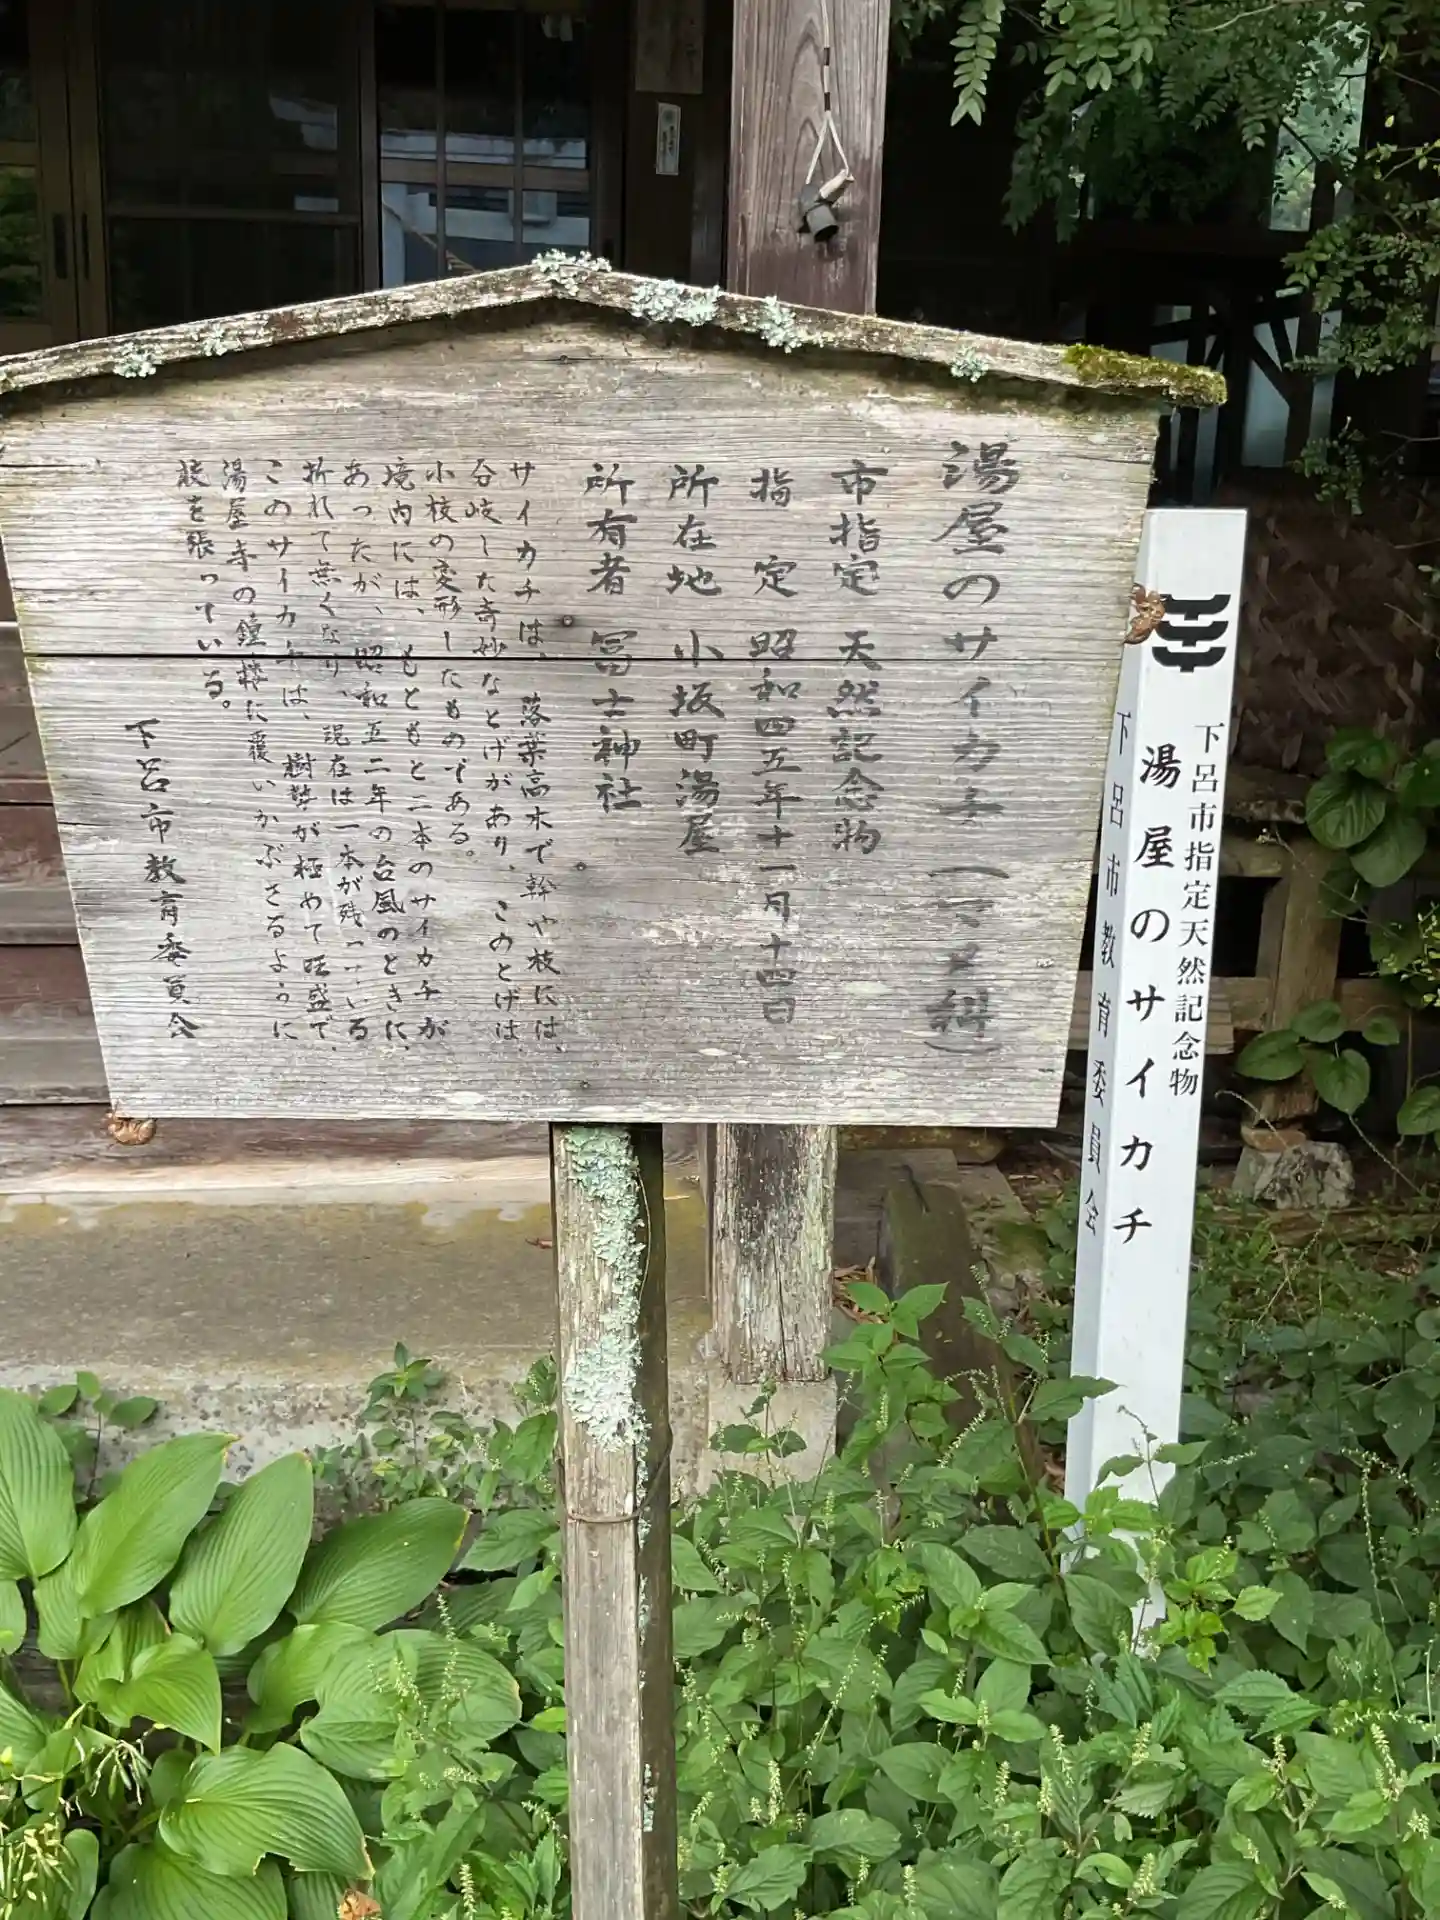 湯屋のサイカチ(マメ科)
市指定 天然記念物
指定 昭和四五年十一月十四日
所在地 小坂町湯屋
所有者 冨士神社
サイカチは、落葉高木で幹や枝には、
分岐した奇妙なとげがあり、このとげは
小枝の変形したものである。
境内には、もともと二本のサイカチが
あったが、昭和五二年の台風のときに、
折れて無くなり、現在は一本が残っている
このサイカチは、樹勢が極めて旺盛で、
湯屋寺の鐘楼に覆いかぶさるように
枝を張っている。
下呂市教育委員会
下呂市指定天然記念物
湯屋のサイカチ
下呂市教育委員会